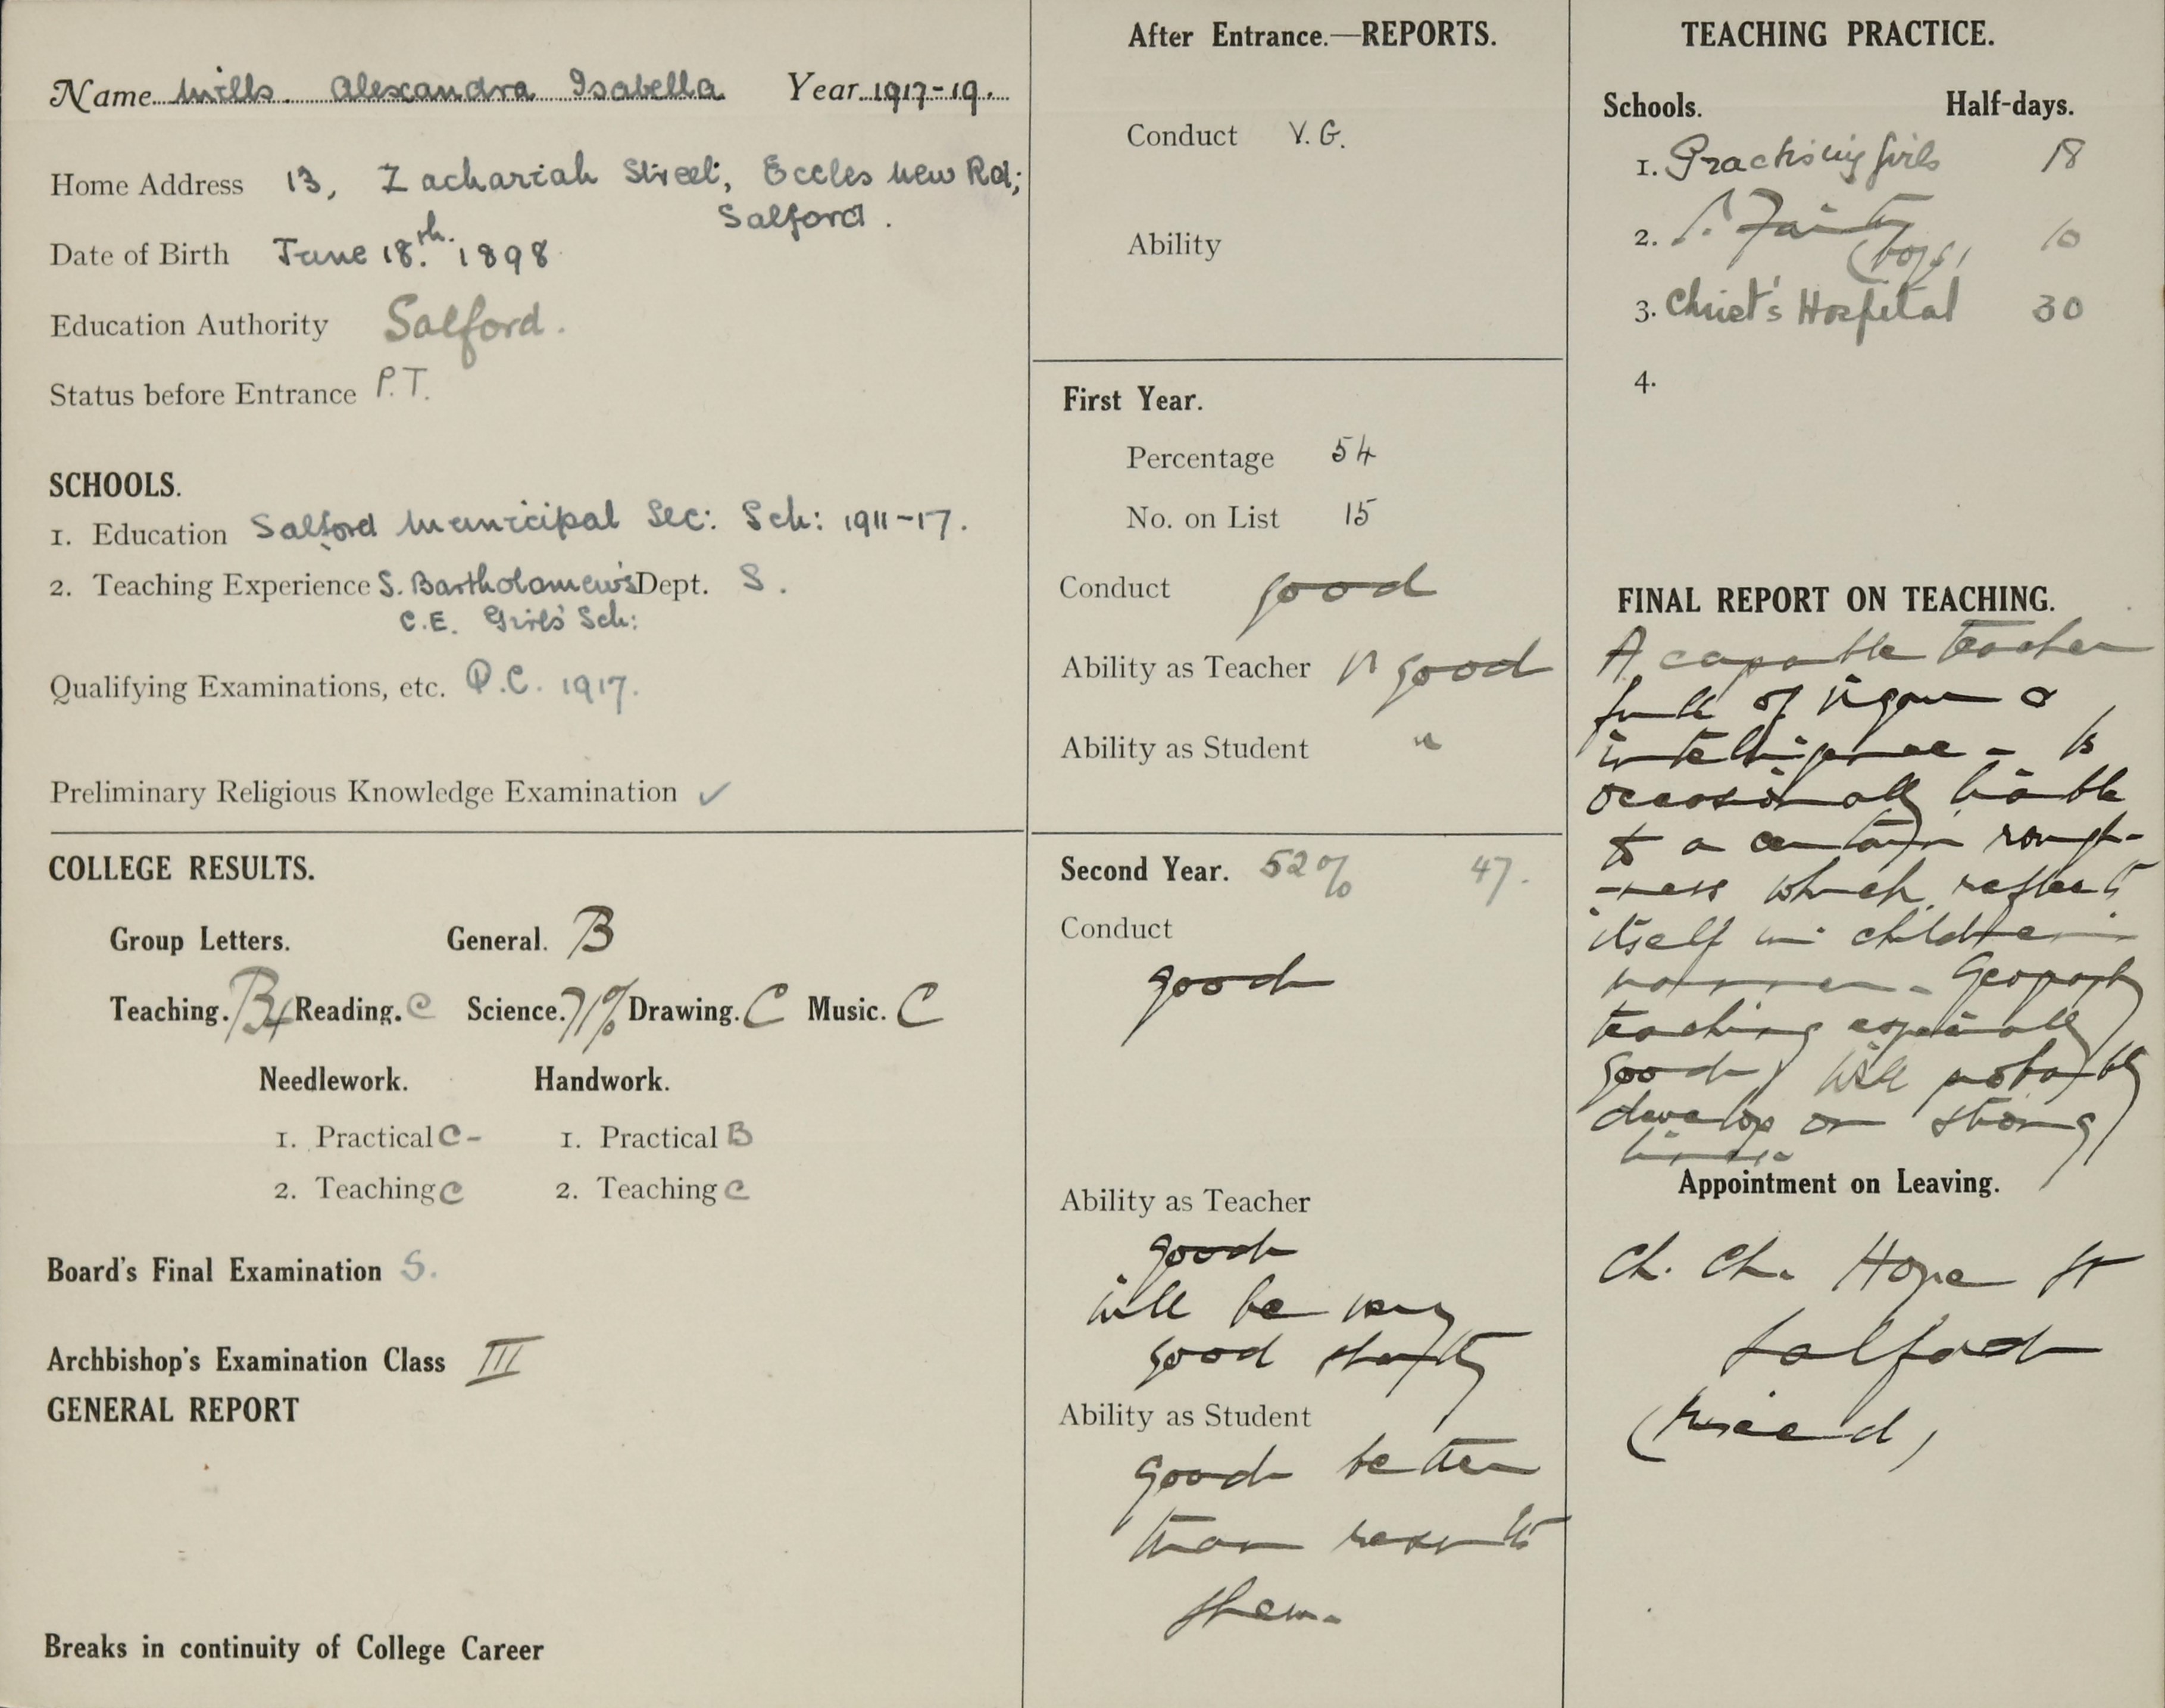 Name Mills. Alexandra Isabella Year 1917-19.
Home Address 13, Zachariah Street, Eccles New Rd;
Salford.
Date of Birth June 18.th 1898
Education Authority Salford.
Status before Entrance P.T.
SCHOOLS.
1. Education Salford Municipal Sec: Sch: 1911-17.
2. Teaching Experience S. Bartholomew's Dept. S.
C.E. Girls' Sch:
Qualifying Examinations, etc. P.C. 1917.
Preliminary Religious Knowledge Examination ✓
COLLEGE RESULTS.
Group Letters. General. B
Teaching. B+ Reading. C Science. 71% Drawing. C Music. C
Needlework. Handwork.
1. Practical C- 1. Practical B
2. Teaching C 2. Teaching C
Board's Final Examination S.
Archbishop's Examination Class III
GENERAL REPORT
Breaks in continuity of College Career
After Entrance.—REPORTS.
Conduct V.G.
Ability
First Year.
Percentage 54
No. on List 15
Conduct good
Ability as Teacher V good
Ability as Student "
Second Year. 52% 47.
Conduct
good
Ability as Teacher
good
will be very
good shortly
Ability as Student
Good better
than results
shew.
TEACHING PRACTICE.
Schools. Half-days.
1. Practising Girls 18
2. S. Faith (boys) 10
3. Christ's Hospital 30
4.
FINAL REPORT ON TEACHING.
A capable teacher
full of vigour &
intelligence - Is
occasionally liable
to a certain rough-
-ness which reflects
itself in children's
manner. Geography
teaching especially
good. Will probably
develop on strong
lines.
Appointment on Leaving.
Ch. Ch. Hope St
Salford
(mixed)